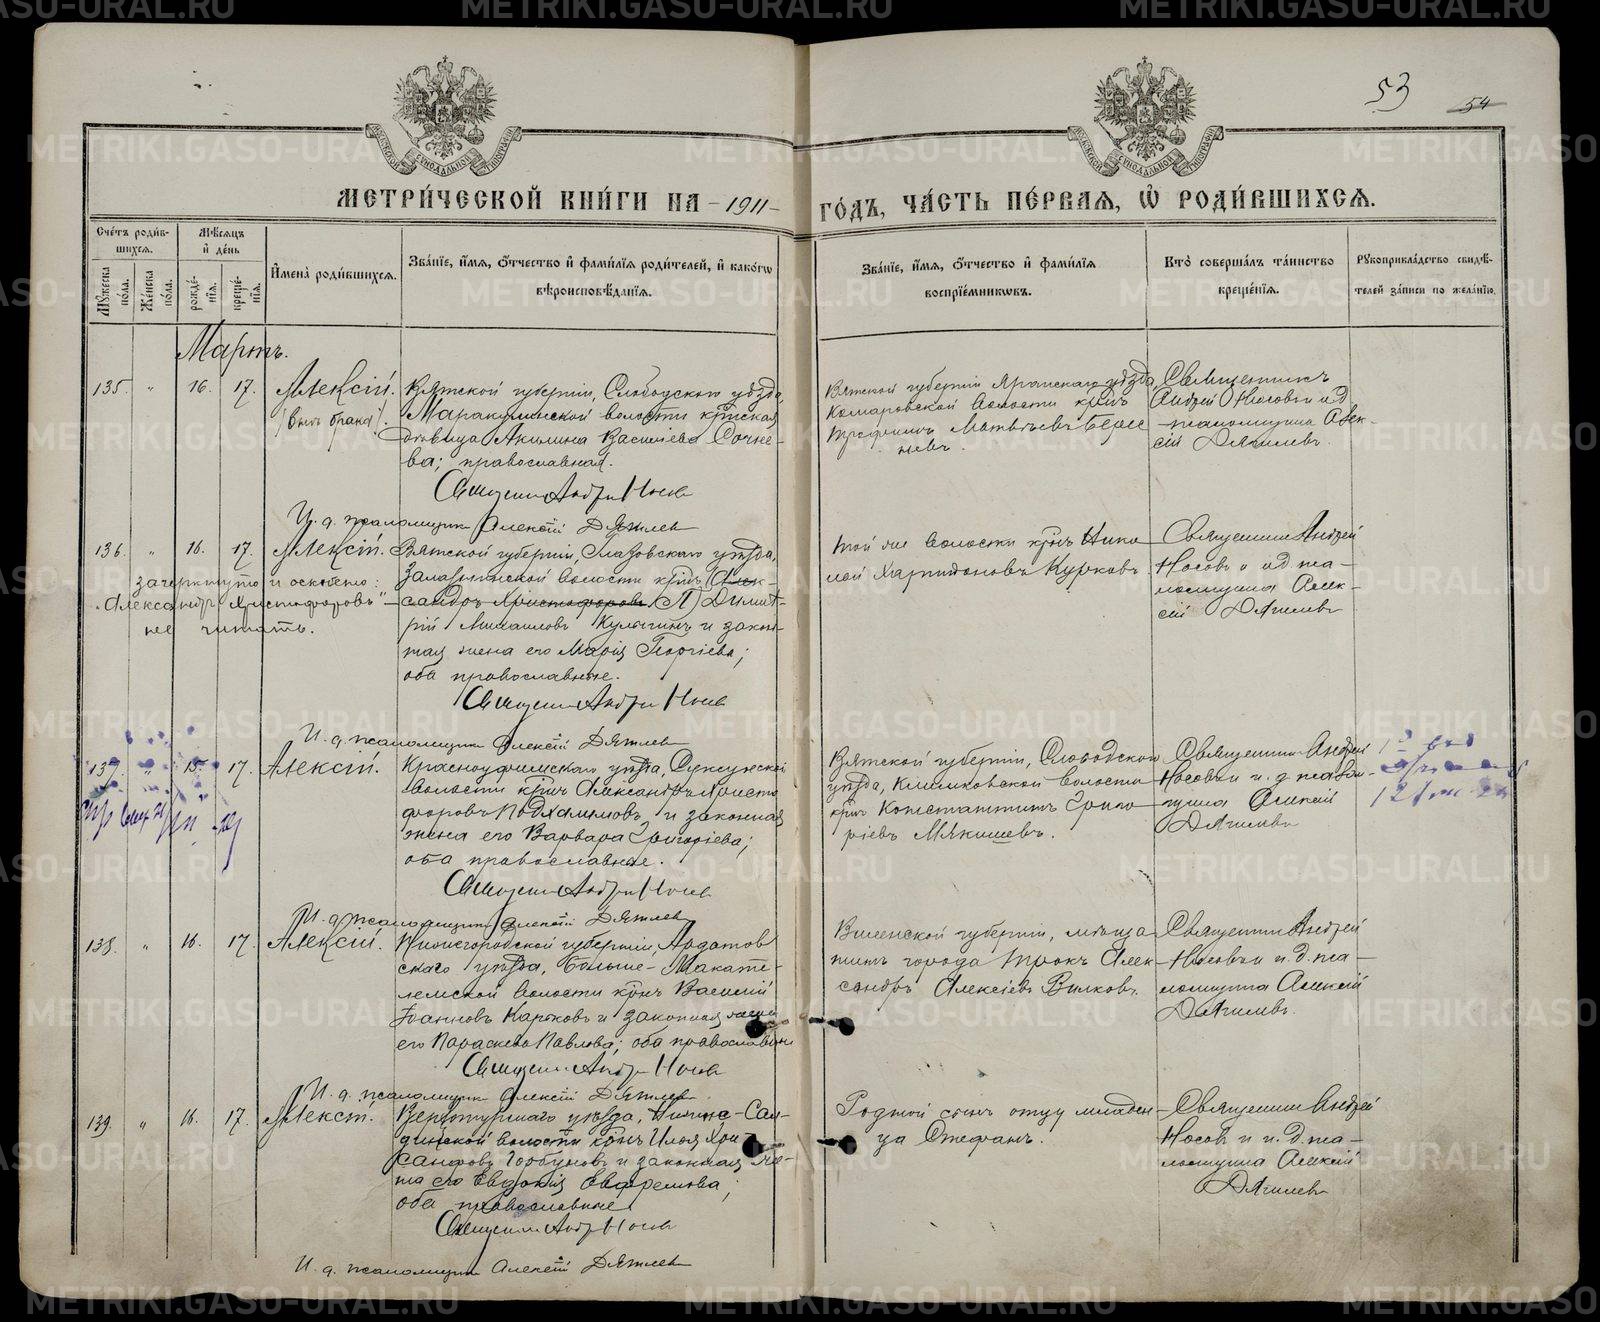 53
54
МЕТРИ́ЧЕСКОЙ КНИ́ГИ НА -1911-
ГО́ДЪ, ЧА́СТЬ ПЕ́РВАЯ, Ѡ҆ РОДИ́ВШИХСЯ.
Сче́тъ роди́в-
шихся.
Мѣ́сяцъ
и҆ де́нь
Му́жеска по́ла.
Же́нска по́ла.
рожде́-нїя.
креще́-нїя.
И҆мена̀ роди́вшихся.
Зва́нїе, и҆́мя, ѻ҆́тчество и҆ фами́лїя роди́телей, и҆ како́гѡ
вѣроисповѣ́данїя.
Зва́нїе, и҆́мя, ѻ҆́тчество и҆ фами́лїя
воспрїе́мникѡвъ.
Кто̀ соверша́лъ та́инство
креще́нїя.
Рꙋкоприкла́дство свидѣ́-
телей за́писи по жела́нїю.
Мартъ.
135. " 16. 17. Алексій.
(внѣ брака).
Вятской губерніи, Слободского уѣзда,
Маракулинской волости кр̃тская
дѣвица Акилина Василіева Сочне-
ва; православная.
Священник Андрей Носов
И. д. псаломщика Алексій Дягилев
Вятской губерніи Яранскаго уѣзда,
Комаровской волости кр̃нъ
Трофимъ Матвѣевъ
Священникъ
Андрей Носовъ и д
псаломщика Алек-
сій Дягилевъ.
136. " 16. 17. Алексій.
зачеркнуто и оскоблено:
"Александръ Христофоровъ" –
не читать.
Вятской губерніи, Глазовского уѣзда,
волости кр̃нъ Алек-
сандръ Христофоровъ (П) Димит-
рій Михаиловъ Кулыгинъ и закон-
ная жена его Марія Георгіева;
оба православные.
Священник Андрей Носов
И. д. псаломщика Алексій Дягилев
той же волости кр̃нъ Нико-
лай Харитоновъ Курковъ
Священник Андрей
Носовъ и и д пса-
ломщика Алек-
сій Дягилевъ
137. " 15. 17. Алексій.
Красноуфимскаго уѣзда, Суксунской
волости кр̃нъ Александръ Христо-
форовъ Подхалимовъ и законная
жена его Варвара Григоріева;
оба православные.
Священник Андрей Носов
И. д. псаломщика Алексій Дягилев
Вятской губерніи, Слободского
уѣзда, Климковской волости
кр̃нъ Константинъ Григо-
ріевъ Мякишевъ.
Священник Андрей
Носовъ и и. д. псалом-
щика Алексій
Дягилевъ
138. " 16. 17. Алексій.
Нижегородской губерніи, Ардатов-
скаго уѣзда, Больше-Макате-
лемской волости кр̃нъ Василій
Іоанновъ Карьковъ и законная жена
его Параскева Павлова; оба православные
Священник Андрей Носов
И. д. псаломщика Алексій Дягилев
Виленской губерніи, мѣща-
нинъ города Трокъ Алек-
сандръ Алексіевъ Вилковъ.
Священник Андрей
Носовъ и и. д. пса-
ломщика Алексій
Дягилевъ.
139. " 16. 17. Алексій.
Верхотурскаго уѣзда, Нижне-Сал-
динской волости кр̃нъ Илья Хри-
санфовъ Горбуновъ и законная же-
на его Евдокія Ефремова;
оба православные
Священник Андрей Носов
И. д. псаломщика Алексій Дягилев
Родной сынъ отцу младен-
ца Стефанъ.
Священник Андрей
Носов и и. д. пса-
ломщика Алексій
Дягилевъ
METRIKI.GASO-URAL.RU